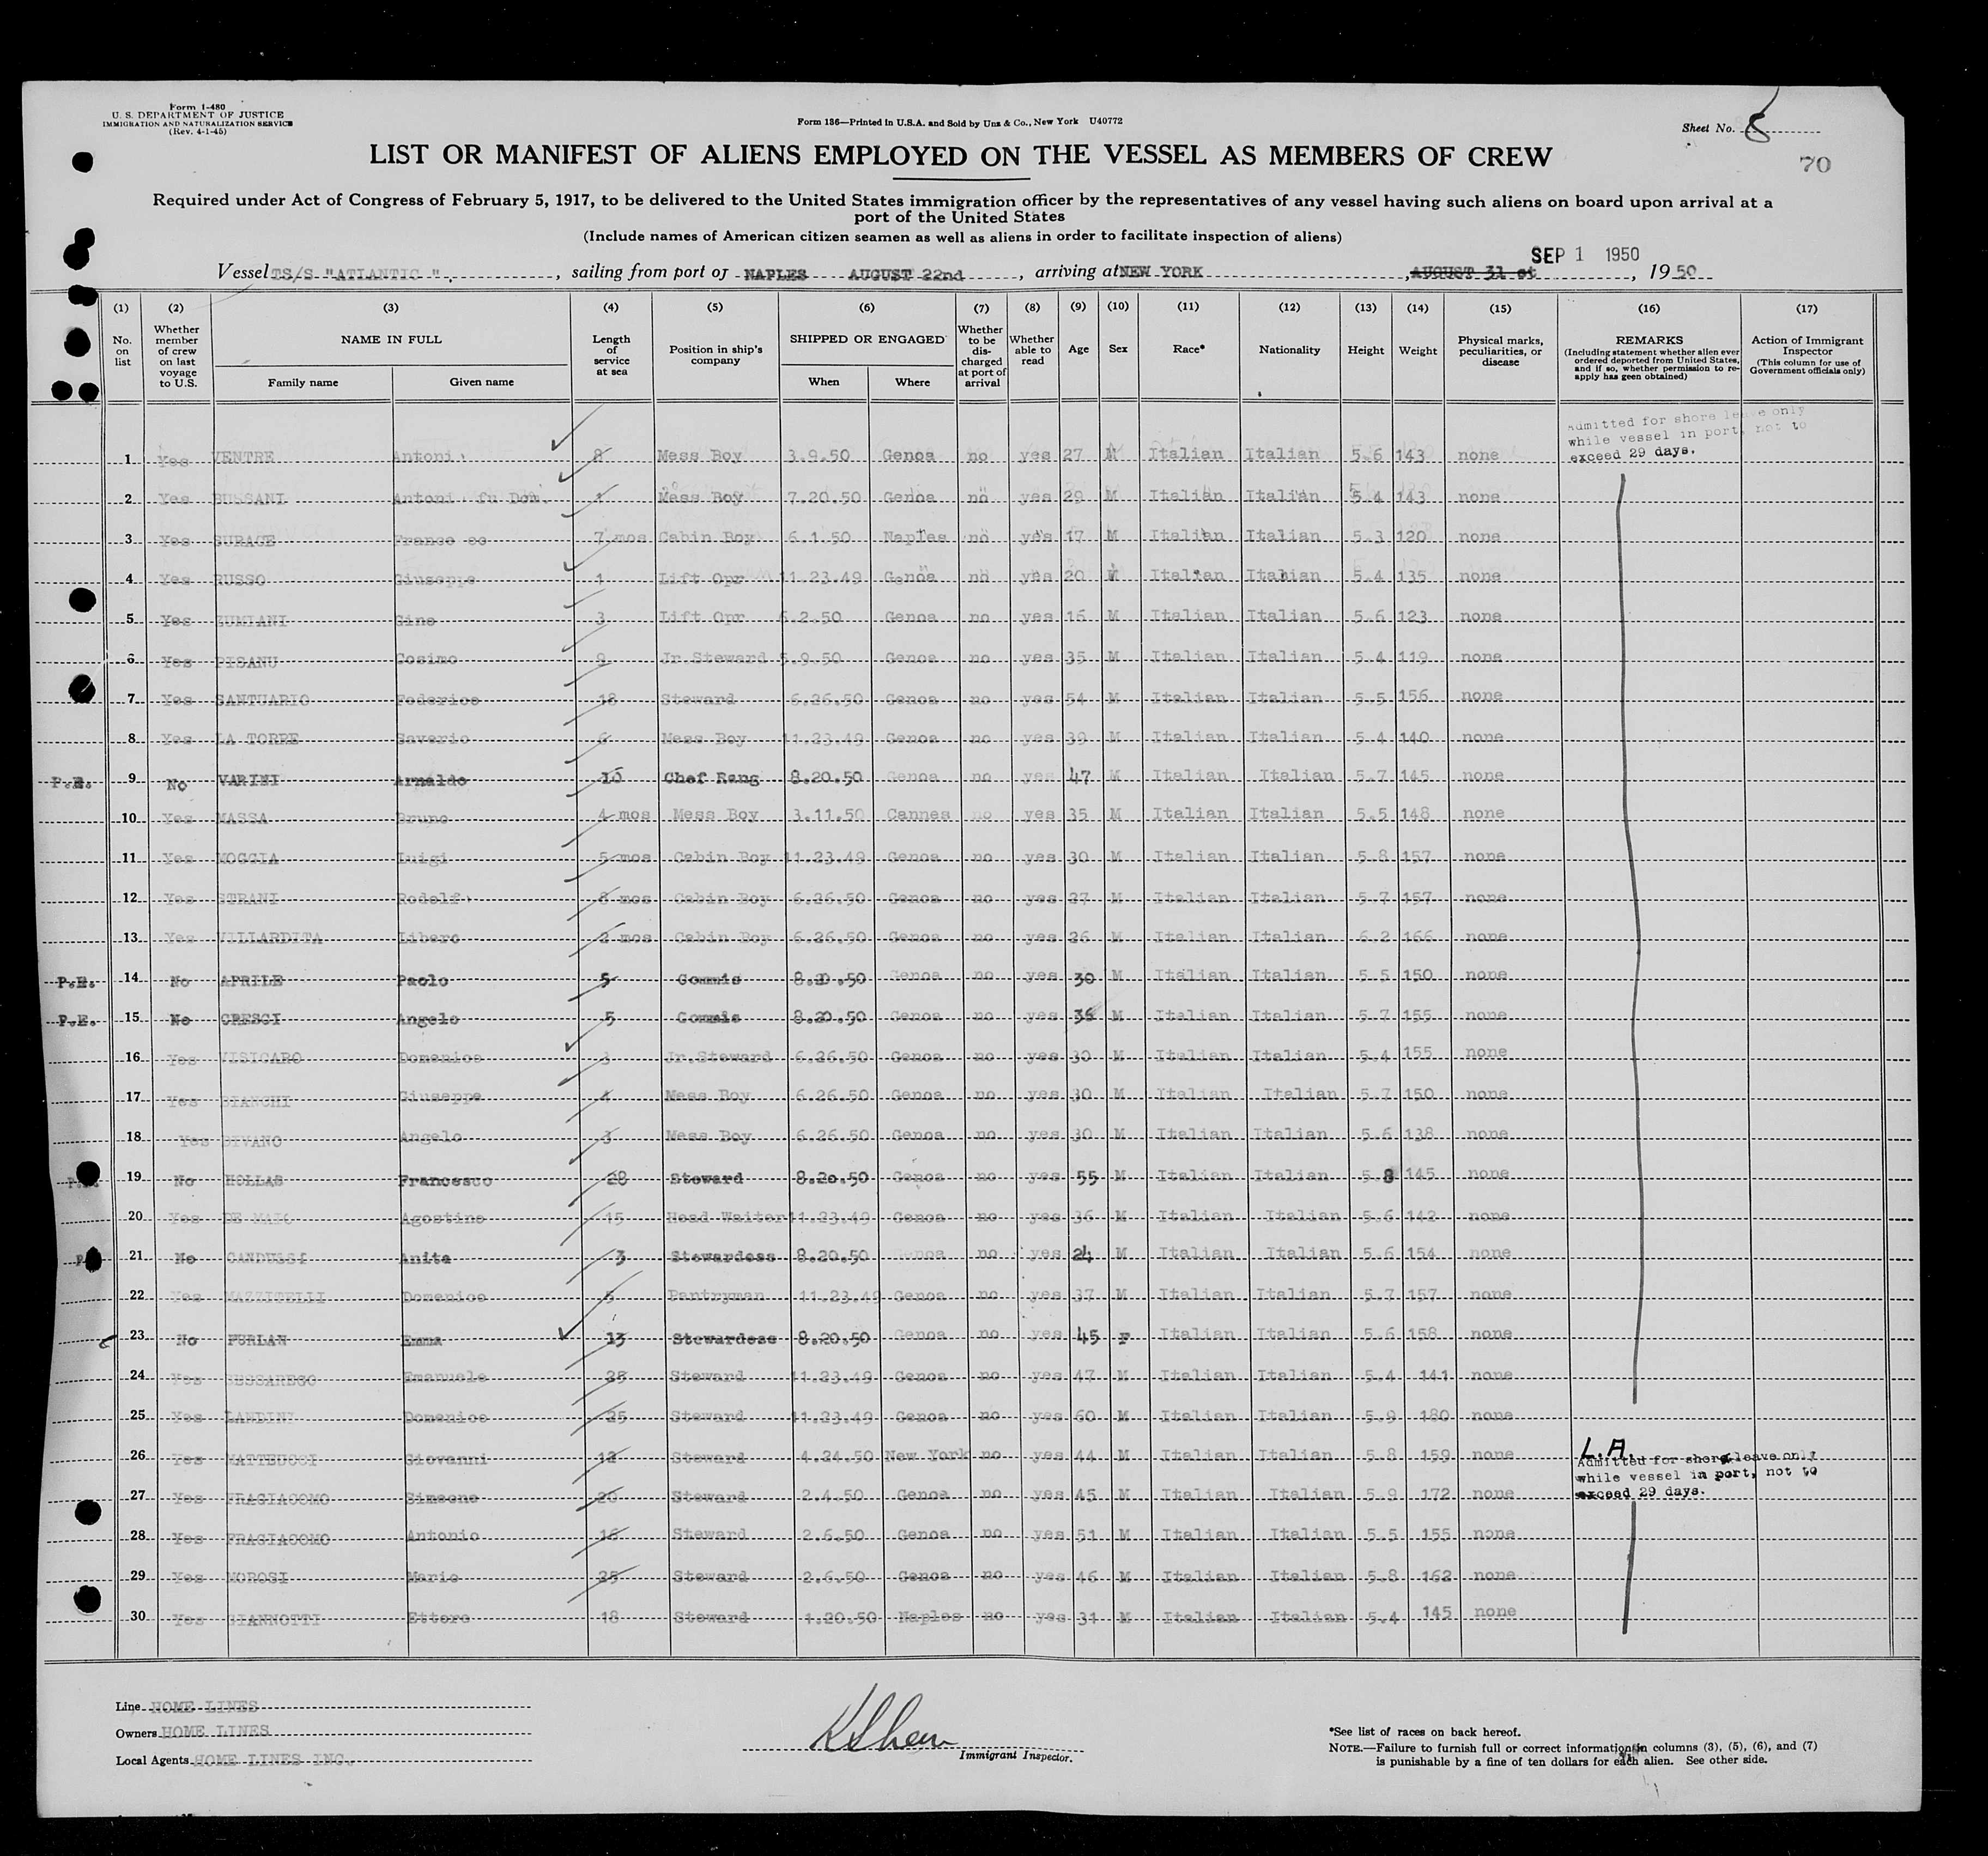 Form I-480
U. S. DEPARTMENT OF JUSTICE
IMMIGRATION AND NATURALIZATION SERVICE
(Rev. 4-1-45)
Form 136—Printed in U.S.A. and Sold by Unz & Co., New York U40772
Sheet No. 8
70
LIST OR MANIFEST OF ALIENS EMPLOYED ON THE VESSEL AS MEMBERS OF CREW
Required under Act of Congress of February 5, 1917, to be delivered to the United States immigration officer by the representatives of any vessel having such aliens on board upon arrival at a
port of the United States
(Include names of American citizen seamen as well as aliens in order to facilitate inspection of aliens)
SEP 1 1950
Vessel TS/S "ATLANTIC", sailing from port of NAPLES AUGUST 22nd, arriving at NEW YORK, AUGUST 31 st, 1950
(1) (2) (3) (4) (5) (6) (7) (8) (9) (10) (11) (12) (13) (14) (15) (16) (17)
No. on list
Whether member of crew on last voyage to U.S.
NAME IN FULL
Family name
Given name
Length of service at sea
Position in ship's company
SHIPPED OR ENGAGED
When
Where
Whether to be dis-charged at port of arrival
Whether able to read
Age
Sex
Race*
Nationality
Height
Weight
Physical marks, peculiarities, or disease
REMARKS
(Including statement whether alien ever ordered deported from United States, and if so, whether permission to re-apply has geen obtained)
Action of Immigrant Inspector
(This column for use of Government officials only)
Admitted for shore leave only
while vessel in port, not to
exceed 29 days.
1 Yes VENTRE Antoni 8 Mess Boy 3.9.50 Genoa no yes 27 M Italian Italian 5.6 143 none
2 Yes BUSSANI Antoni fu Dom. 1 Mess Boy 7.20.50 Genoa no yes 29 M Italian Italian 5.4 143 none
3 Yes SURACE France sc 7 mos Cabin Boy 6.1.50 Naples no yes 17 M Italian Italian 5.3 120 none
4 Yes RUSSO Giuseppe 1 Lift Opr 11.23.49 Genoa no yes 20 M Italian Italian 5.4 135 none
5 Yes ZUMIANI Gino 3 Lift Opr 6.2.50 Genoa no yes 16 M Italian Italian 5.6 123 none
6 Yes PISANU Cosimo 9 Jr.Steward 5.9.50 Genoa no yes 35 M Italian Italian 5.4 119 none
7 Yes SANTUARIO Federico 18 Steward 6.26.50 Genoa no yes 54 M Italian Italian 5.5 156 none
8 Yes LA TORRE Saverio 6 Mess Boy 11.23.49 Genoa no yes 39 M Italian Italian 5.4 140 none
P.E. 9 No VARINI Arnaldo 10 Chef Rang 8.20.50 Genoa no yes 47 M Italian Italian 5.7 145 none
10 Yes MASSA Bruno 4 mos Mess Boy 3.11.50 Cannes no yes 35 M Italian Italian 5.5 148 none
11 Yes MOCCIA Luigi 5 mos Cabin Boy 11.23.49 Genoa no yes 30 M Italian Italian 5.8 157 none
12 Yes STRANI Rodolf 8 mos Cabin Boy 6.26.50 Genoa no yes 27 M Italian Italian 5.7 157 none
13 Yes VILLARDITA Libero 2 mos Cabin Boy 6.26.50 Genoa no yes 26 M Italian Italian 6.2 166 none
P.E. 14 No APRILE Paolo 5 Commis 8.20.50 Genoa no yes 30 M Italian Italian 5.5 150 none
P.E. 15 No CRESCI Angelo 5 Commis 8.20.50 Genoa no yes 36 M Italian Italian 5.7 155 none
16 Yes VISICARO Domenico 3 Jr.Steward 6.26.50 Genoa no yes 30 M Italian Italian 5.4 155 none
17 Yes BIANCHI Giuseppe 4 Mess Boy 6.26.50 Genoa no yes 30 M Italian Italian 5.7 150 none
18 Yes Angelo 3 Mess Boy 6.26.50 Genoa no yes 30 M Italian Italian 5.6 138 none
19 No HOLLAS Francesco 28 Steward 8.20.50 Genoa no yes 55 M Italian Italian 5.8 145 none
20 Yes DE MAIO Agostino 15 Head Waiter 11.23.49 Genoa no yes 36 M Italian Italian 5.6 142 none
21 No CANDUSSI Anita 3 Stewardess 8.20.50 Genoa no yes 24 M Italian Italian 5.6 154 none
22 Yes MAZZITELLI Domenico 5 Pantryman 11.23.49 Genoa no yes 37 M Italian Italian 5.7 157 none
23 No FURLAN Emma 13 Stewardess 8.20.50 Genoa no yes 45 F Italian Italian 5.6 158 none
24 Yes SESSAREGO Emanuele 25 Steward 11.23.49 Genoa no yes 47 M Italian Italian 5.4 141 none
25 Yes LANDINI Domenico 25 Steward 11.23.49 Genoa no yes 60 M Italian Italian 5.9 180 none
26 Yes MATTEUCCI Giovanni 12 Steward 4.24.50 New York no yes 44 M Italian Italian 5.8 159 none
L.A.
Admitted for shore leave only
while vessel in port, not to
exceed 29 days.
27 Yes FRAGIACOMO Simeone 20 Steward 2.4.50 Genoa no yes 45 M Italian Italian 5.9 172 none
28 Yes FRAGIACOMO Antonio 16 Steward 2.6.50 Genoa no yes 51 M Italian Italian 5.5 155 none
29 Yes MOROSI Mario 25 Steward 2.6.50 Genoa no yes 46 M Italian Italian 5.8 162 none
30 Yes GIANNOTTI Ettore 18 Steward 1.20.50 Naples no yes 31 M Italian Italian 5.4 145 none
Line HOME LINES
Owners HOME LINES
Local Agents HOME LINES INC.
Immigrant Inspector.
*See list of races on back hereof.
NOTE.—Failure to furnish full or correct information in columns (3), (5), (6), and (7)
is punishable by a fine of ten dollars for each alien. See other side.